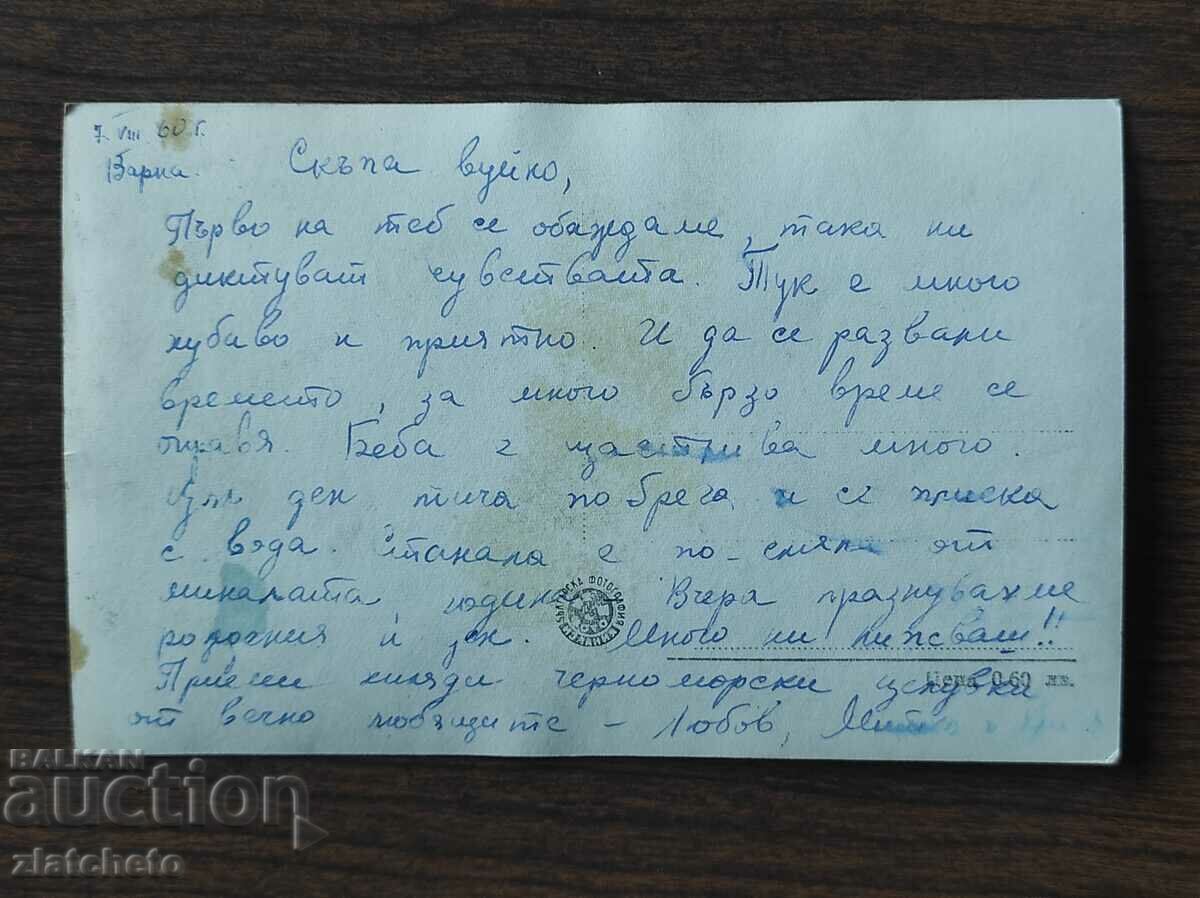 7. VIII 60 г.
Варна.
Скъпа вуйно,
Първо на теб се обаждаме, така ни
диктуват чувствата. Тук е много
хубаво и приятно. И да се развали
времето, за много бързо време се
оправя. Беба е щастлива много.
Цял ден тича по брега и се плиска
с вода. Станала е по-смяла от
миналата година. Вчера празнувахме
рождения ѝ ден. Много ни липсваш!!
Приеми хиляди черноморски целувки
от вечно любящите – Любов,
БЪЛГАРСКА ФОТОГРАФИЯ
Цена 0.60 лв.
BALKAN
auction
zlatcheto